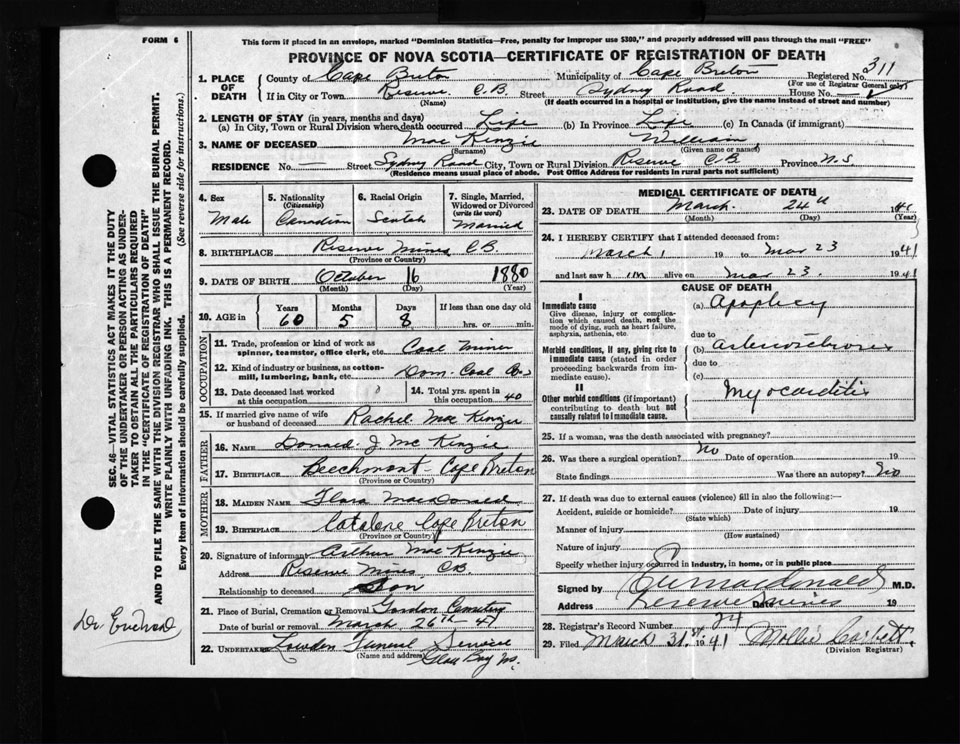 FORM 6
This form if placed in an envelope, marked "Dominion Statistics—Free, penalty for improper use $300," and properly addressed will pass through the mail "FREE"
PROVINCE OF NOVA SCOTIA—CERTIFICATE OF REGISTRATION OF DEATH
1. PLACE OF DEATH County of Cape Breton Municipality of Cape Breton Registered No. 311
(For use of Registrar General only)
If in City or Town Reserve C.B. Street Sydney Road House No.
(Name) (If death occurred in a hospital or institution, give the name instead of street and number)
2. LENGTH OF STAY (in years, months and days)
(a) In City, Town or Rural Division where death occurred Life (b) In Province Life (c) In Canada (if immigrant)
3. NAME OF DECEASED Mac Kinzie William
(Surname) (Given name or names)
RESIDENCE No. — Street Sydney Road City, Town or Rural Division Reserve C.B. Province N.S
(Residence means usual place of abode. Post Office Address for residents in rural parts not sufficient)
4. Sex Male
5. Nationality (Citizenship) Canadian
6. Racial Origin Scotch
7. Single, Married, Widowed or Divorced (write the word) Married
8. BIRTHPLACE Reserve Mines C.B.
(Province or Country)
9. DATE OF BIRTH October 16 1880
(Month) (Day) (Year)
10. AGE in Years 60 Months 5 Days 8 If less than one day old hrs. or min.
OCCUPATION
11. Trade, profession or kind of work as spinner, teamster, office clerk, etc. Coal Miner
12. Kind of industry or business, as cotton-mill, lumbering, bank, etc. Dom. Coal Co
13. Date deceased last worked at this occupation
14. Total yrs. spent in this occupation 40
15. If married give name of wife or husband of deceased Rachel Mac Kinzie
FATHER
16. NAME Donald J Mc Kinzie
17. BIRTHPLACE Beechmont - Cape Breton
(Province or Country)
MOTHER
18. MAIDEN NAME Flora MacDonald
19. BIRTHPLACE Catalone Cape Breton
(Province or Country)
20. Signature of informant Arthur Mac Kinzie
Address Reserve Mines C.B.
Relationship to deceased Son
21. Place of Burial, Cremation or Removal Gordon Cemetery
Date of burial or removal March 26th - 41
22. UNDERTAKER Lowden Funeral Service
(Name and address) Glace Bay NS.
MEDICAL CERTIFICATE OF DEATH
23. DATE OF DEATH March 24th 1941
(Month) (Day) (Year)
24. I HEREBY CERTIFY that I attended deceased from:
March 1 19 to Mar 23 1941
and last saw h im alive on Mar 23. 1941
CAUSE OF DEATH
I
Immediate cause (a) Apoplexy
Give disease, injury or complication which caused death, not the mode of dying, such as heart failure, asphyxia, asthenia, etc.
due to
Morbid conditions, if any, giving rise to immediate cause (stated in order proceeding backwards from immediate cause). (b) Arteriosclerosis
due to
(c)
II
Other morbid conditions (if important) contributing to death but not causally related to immediate cause. Myocarditis
25. If a woman, was the death associated with pregnancy?
26. Was there a surgical operation? No Date of operation 19
State findings Was there an autopsy? No
27. If death was due to external causes (violence) fill in also the following:—
Accident, suicide or homicide? Date of injury 19
(State which)
Manner of injury
(How sustained)
Nature of injury
Specify whether injury occurred in industry, in home, or in public place
Signed by MacDonald M.D.
Address Reserve Mines Date 19
28. Registrar's Record Number 24
29. Filed March 31st 1941 Mollie Corbett
(Division Registrar)
SEC. 46—VITAL STATISTICS ACT MAKES IT THE DUTY
OF THE UNDERTAKER OR PERSON ACTING AS UNDER-
TAKER TO OBTAIN ALL THE PARTICULARS REQUIRED
IN THE "CERTIFICATE OF REGISTRATION OF DEATH"
AND TO FILE THE SAME WITH THE DIVISION REGISTRAR WHO SHALL ISSUE THE BURIAL PERMIT.
WRITE PLAINLY WITH UNFADING INK. THIS IS A PERMANENT RECORD.
Every item of information should be carefully supplied. (See reverse side for instructions.)
Dr.